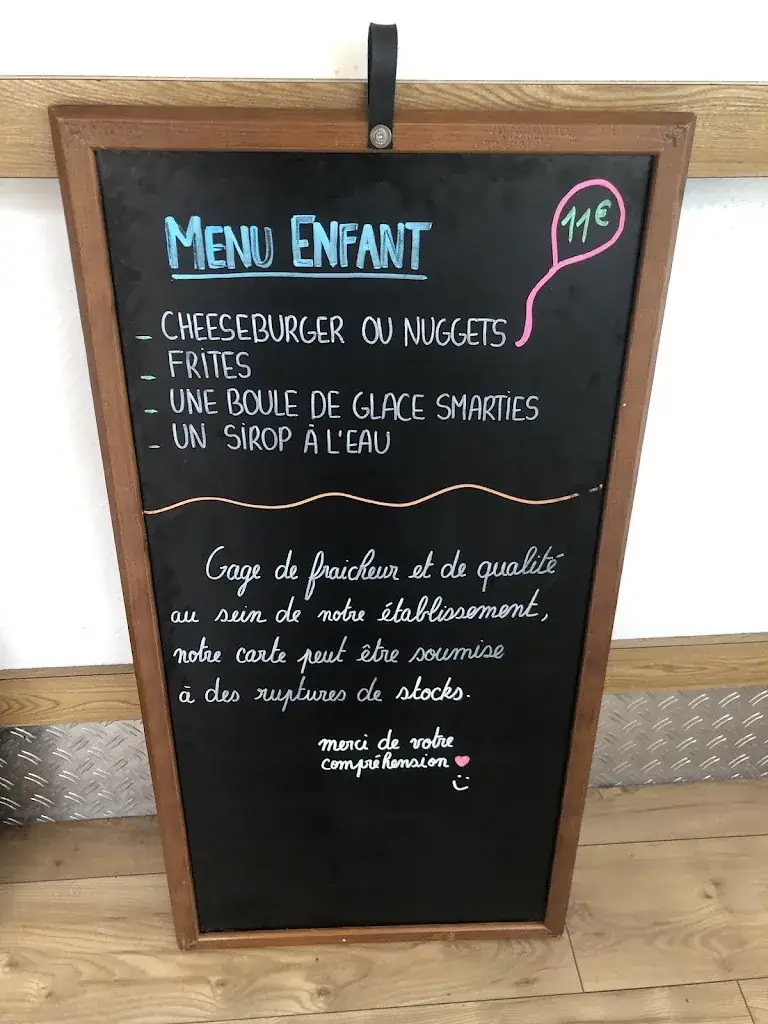 MENU ENFANT
11€
- CHEESEBURGER OU NUGGETS
- FRITES
- UNE BOULE DE GLACE SMARTIES
- UN SIROP À L'EAU
Gage de fraicheur et de qualité
au sein de notre établissement,
notre carte peut être soumise
à des ruptures de stocks.
merci de votre
compréhension